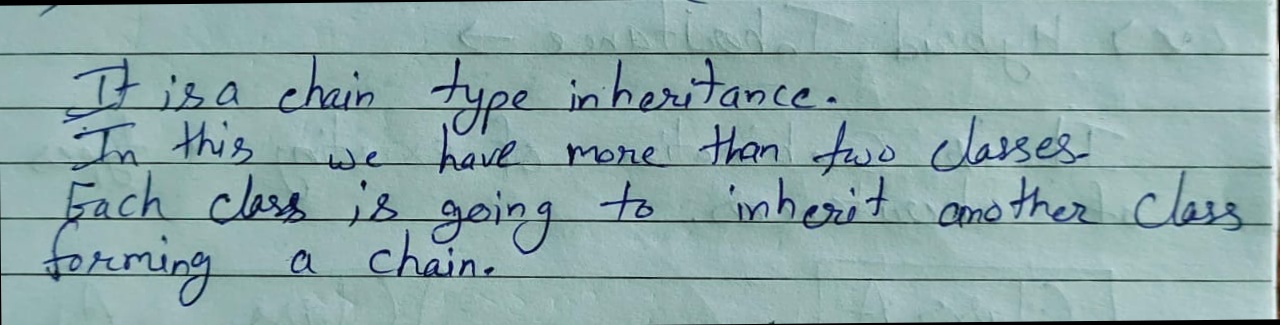 It is a chain type inheritance.
In this we have more than two classes.
Each class is going to inherit another class
forming a chain.